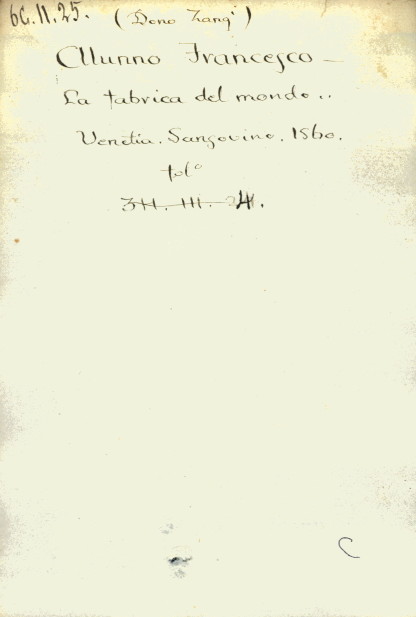 6C.11.25. (Dono Zangi)
Alunno Francesco -
La fabrica del mondo..
Venetia. Sansovino. 1560.
fol°
3H. III. 24.
C